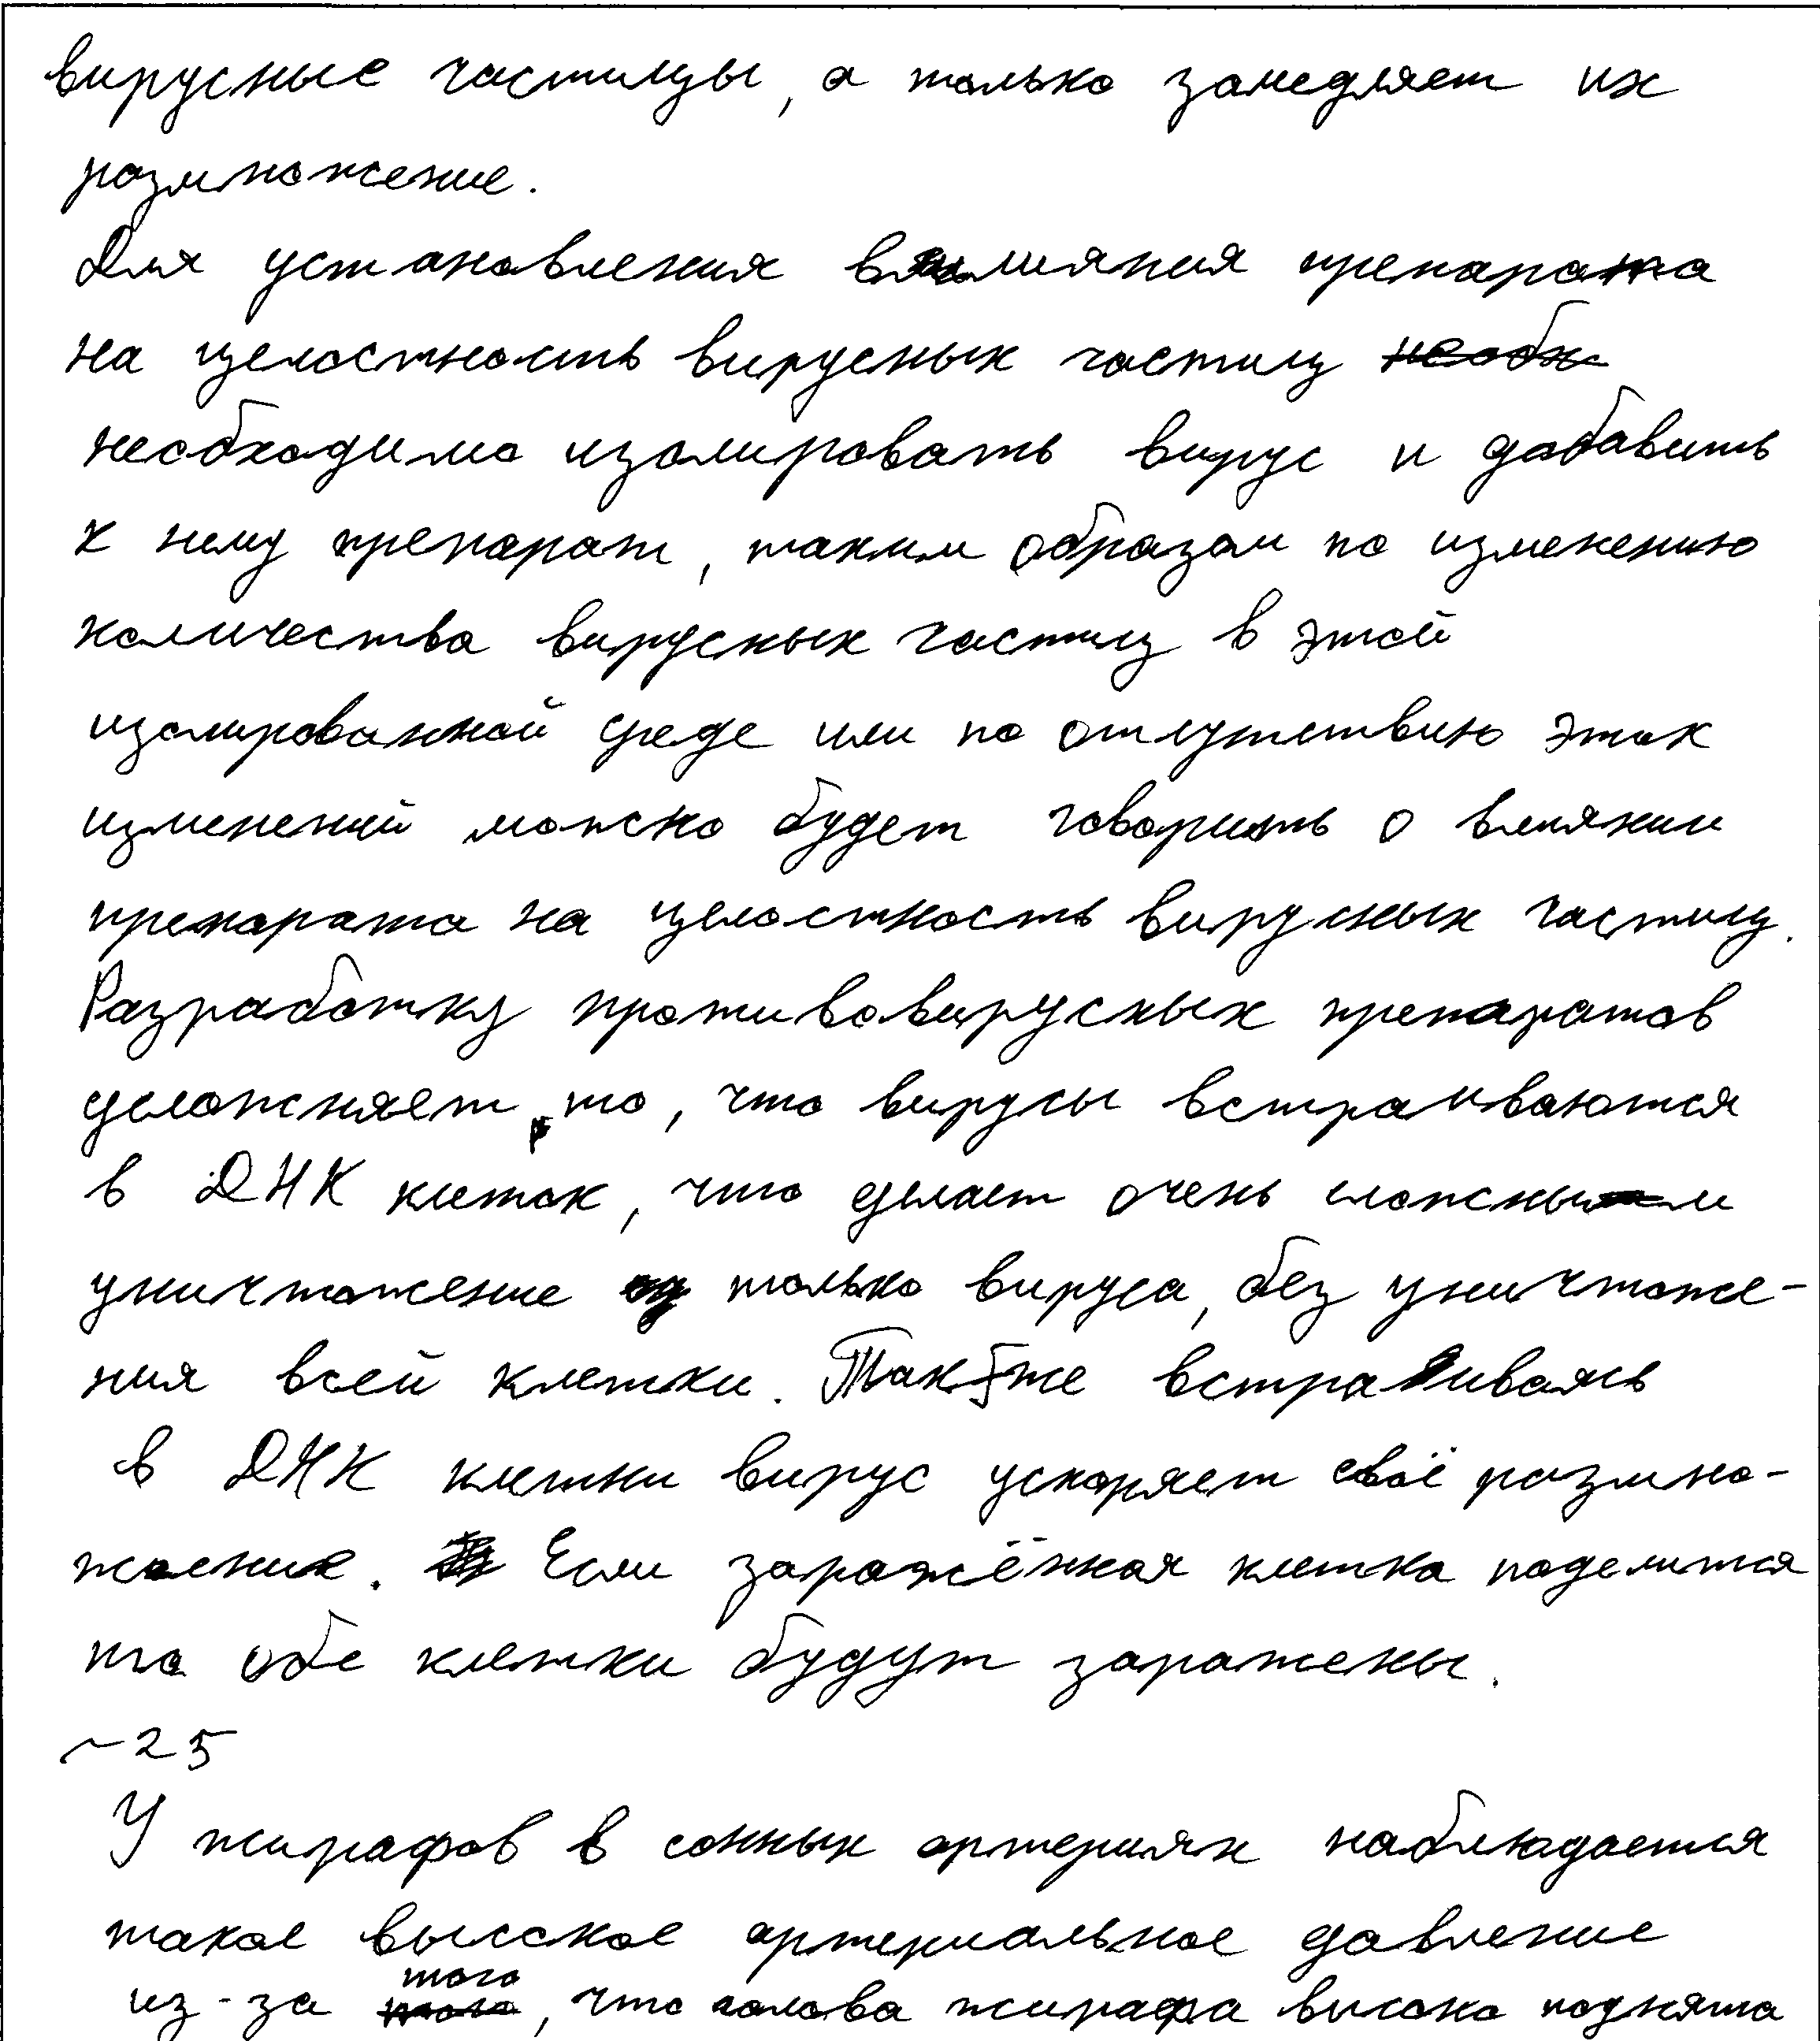 вирусные частицы, а только замедляет их
размножение.
Для установления влияния препарата
на целостность вирусных частиц необх
необходимо изолировать вирус и добавить
к нему препарат, таким образом по изменению
количества вирусных частиц в этой
изолированной среде или по отсутствию этих
изменений можно будет говорить о влиянии
препарата на целостность вирусных частиц.
Разработку противовирусных препаратов
усложняет то, что вирусы встраиваются
в ДНК клеток, что делает очень сложным
уничтожение только вируса, без уничтоже-
ния всей клетки. Также встраиваясь
в ДНК клетки вирус ускоряет своё размно-
жение. Если заражённая клетка поделится
то обе клетки будут заражены.
~25
У жирафов в сонных артериях наблюдается
такое высокое артериальное давление
из-за того, что голова жирафа высоко поднята